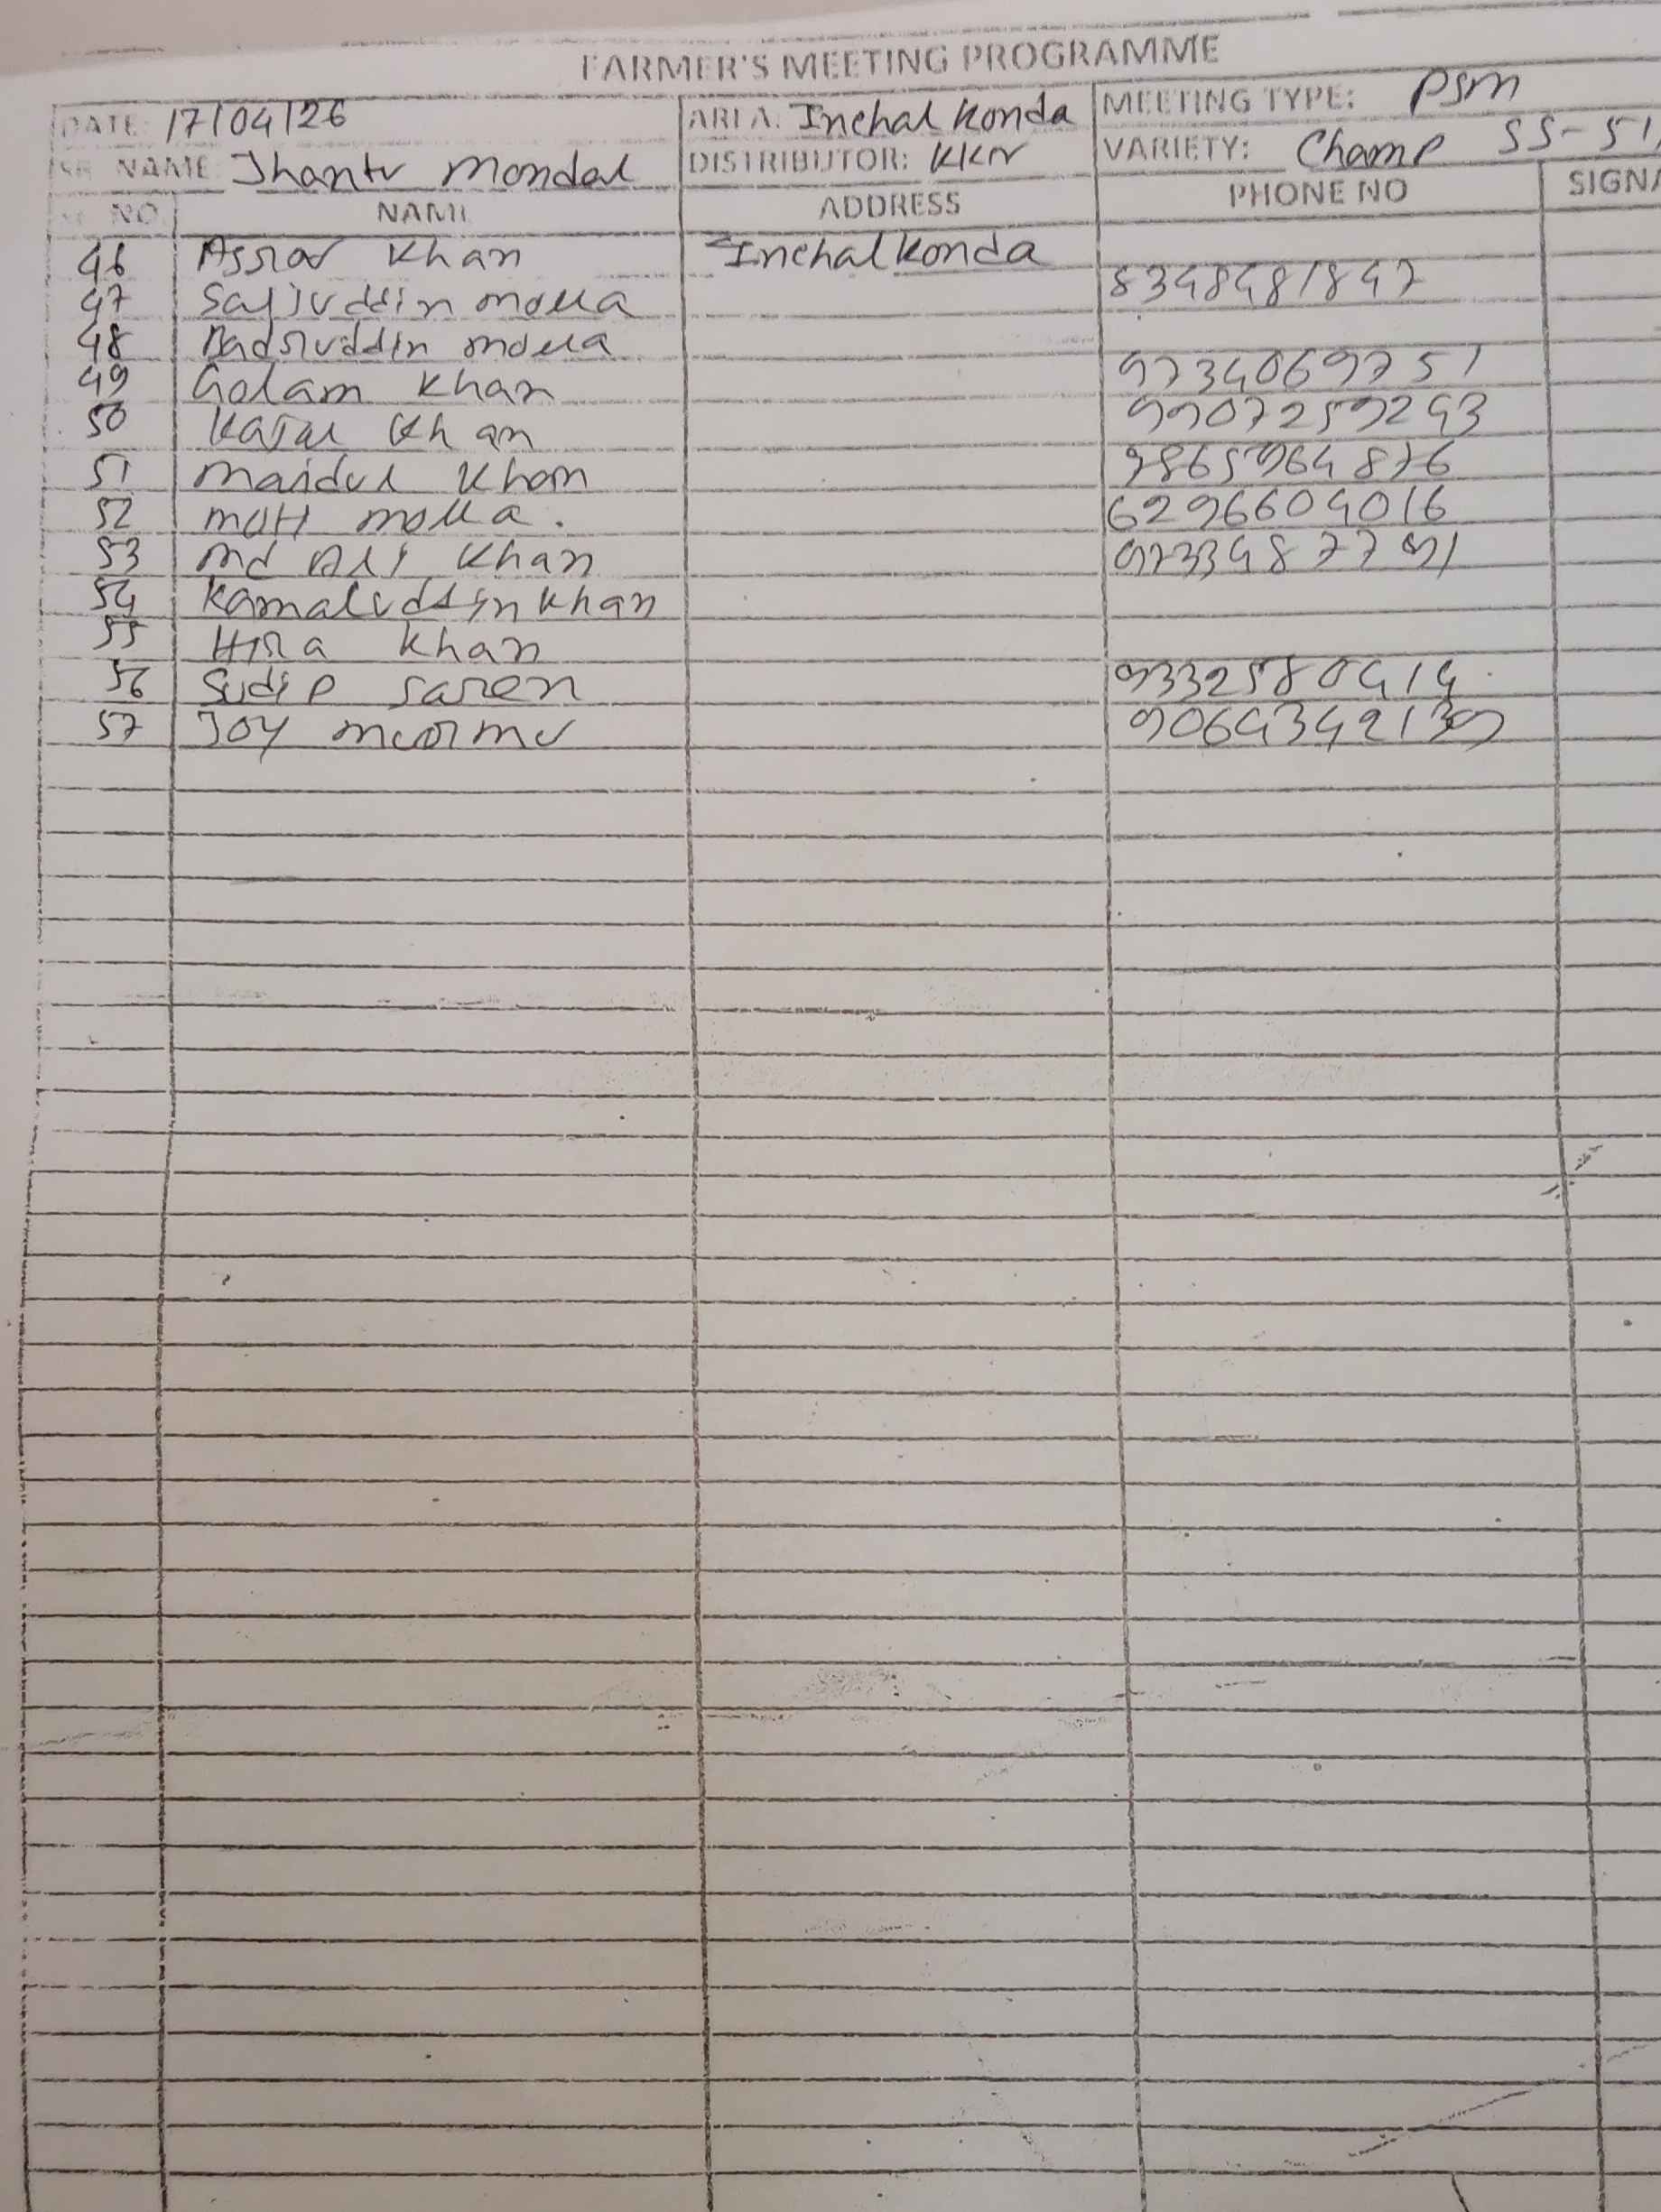 FARMER'S MEETING PROGRAMME
DATE: 17/04/26 AREA: Inchal Konda MEETING TYPE: PSM
SR NAME: Jhantu Mondal DISTRIBUTOR: KKN VARIETY: Champ SS-51
SL NO. NAME ADDRESS PHONE NO SIGNA
46 Assrar Khan Inchalkonda
47 Safiuddin molla 8348481847
48 Badsruddin molla
49 Golam Khan 9734069751
50 Kajal Khan 9907259243
51 maidul Khan
52 moti molla. 6296604016
53 md Ali Khan 9733487791
54 Kamaluddin Khan
55 Hira Khan
56 Sudip saren 9332580414
57 Joy murmu